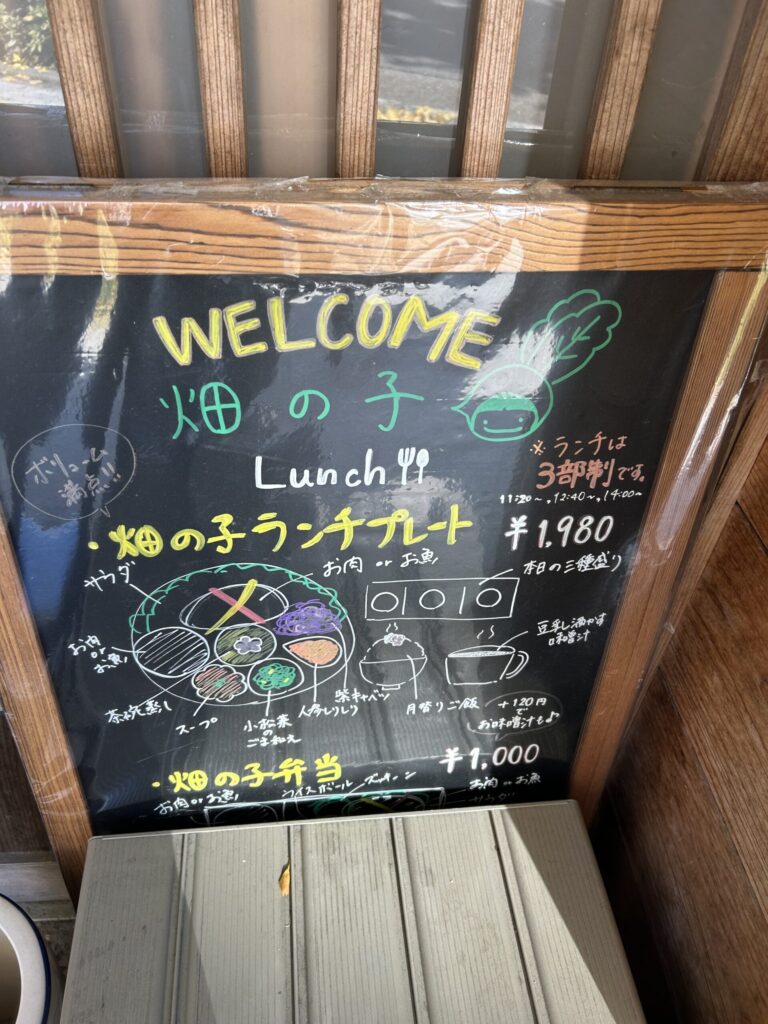 WELCOME
畑の子
Lunch
ボリューム
満点!!
※ランチは
3部制です。
11:20~,12:40~,14:00~
・畑の子ランチプレート ¥1,980
お肉 or お魚
サラダ
本日の三種盛り
お肉
or
お魚
豆乳し
味噌汁
茶碗蒸し
スープ
小松菜
の
ごま和え
人参しりしり
紫キャベツ
月替りご飯
+120円
で
お味噌汁も♪
・畑の子弁当 ¥1,000
お肉 or お魚
ライスボール
お肉 or お魚
サラダ